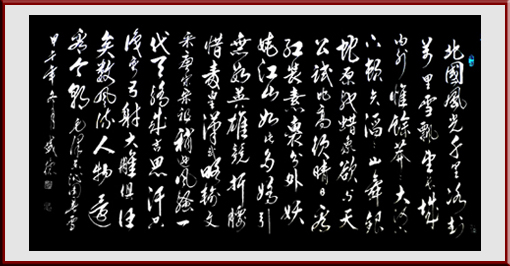 北國風光千里冰封
万里雪飘望长城
内外惟餘莽莽大河
上下顿失滔滔山舞銀
蛇原驰蜡象欲与天
公試比高须晴日看
红装素裹分外妖
娆江山如此多嬌引
無数英雄競折腰
惜秦皇漢武略輸文
采唐宗宋祖稍逊风骚一
代天骄成吉思汗只
識弯弓射大雕俱往
矣数風流人物還
看今朝毛泽东沁园春雪
甲午年冬月